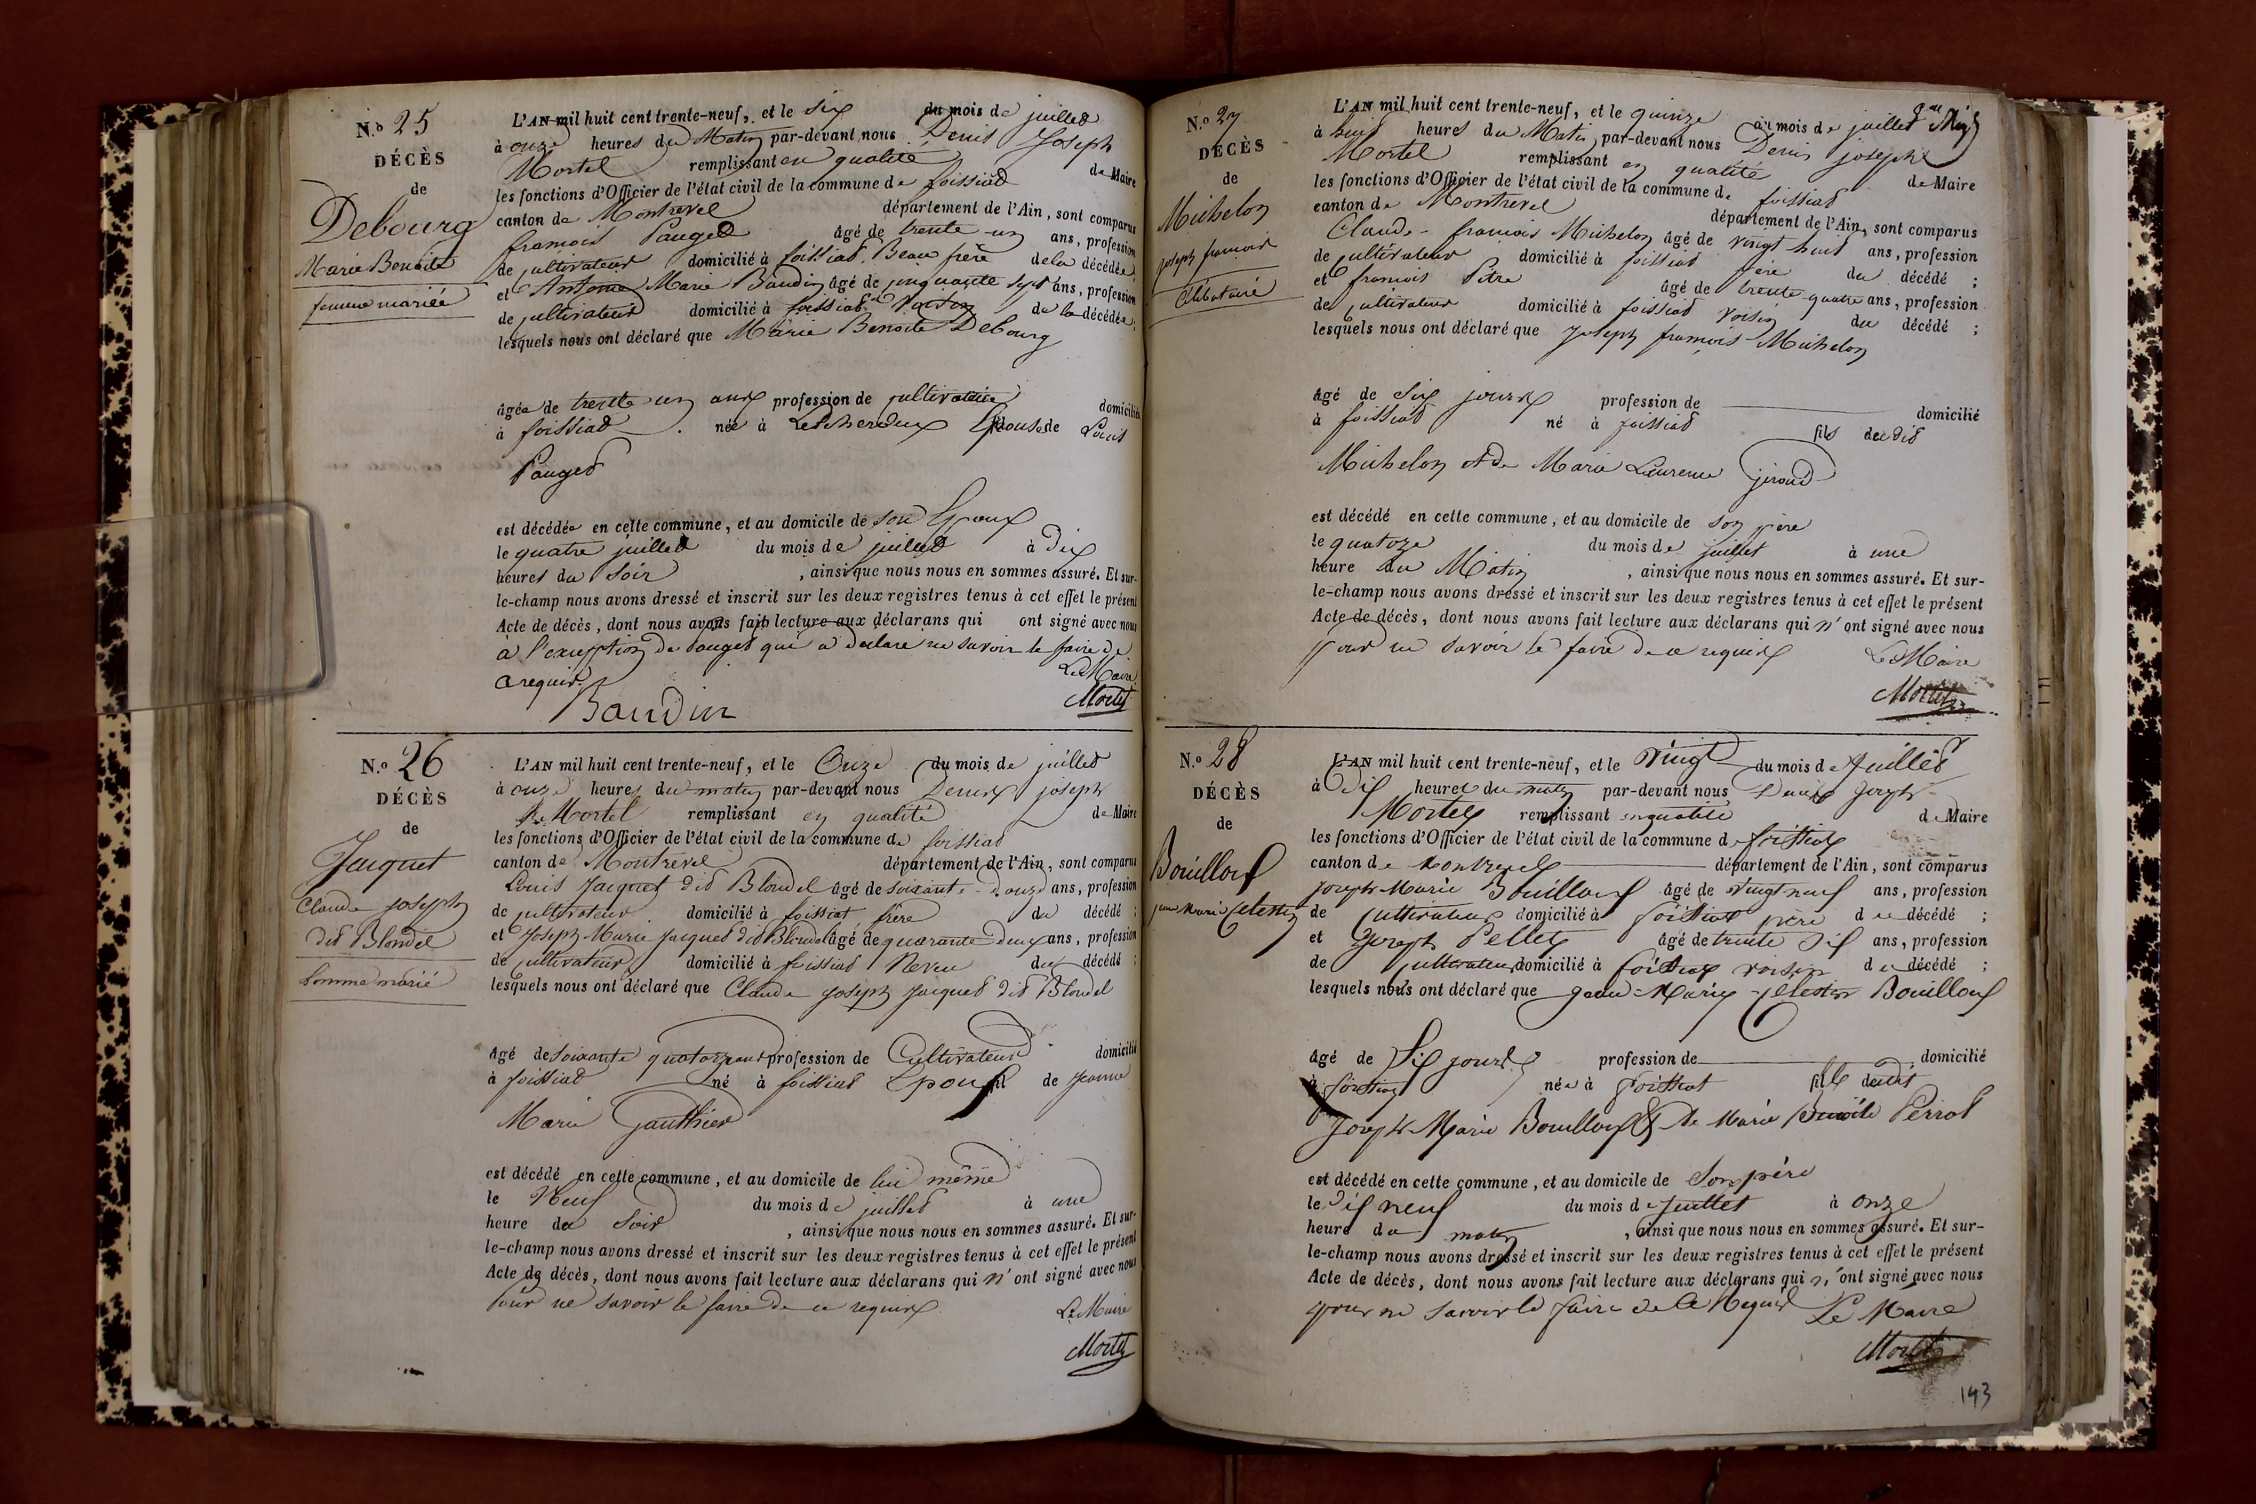 N.o 25
DÉCÈS
de
Debourg
Marie Benoite
femme mariée
L'AN mil huit cent trente-neuf, et le six du mois de juillet
à onze heures du Matin par-devant nous Denis Joseph
Mortel remplissant en qualité de Maire
les fonctions d'Officier de l'état civil de la commune de foissiat
canton de Montrevel département de l'Ain, sont comparus
françois Pauget âgé de trente un ans, profession
de cultivateur domicilié à foissiat, Beau frère de la décédée;
et Antoine Marie Baudin âgé de cinquante sept ans, profession
de cultivateur domicilié à foissiat Voisin de la décédée;
lesquels nous ont déclaré que Marie Benoite Debourg
âgée de trente un ans profession de cultivatrice domiciliée
à foissiat née à Lescheroux Epouse de Louis
Pauget
est décédée en cette commune, et au domicile de son Epoux
le quatre juillet du mois de juillet à dix
heures du Soir, ainsi que nous nous en sommes assuré. Et sur-
le-champ nous avons dressé et inscrit sur les deux registres tenus à cet effet le présent
Acte de décès, dont nous avons fait lecture aux déclarans qui ont signé avec nous
a l'exception de Pauget qui a déclaré ne savoir le faire de ce
requis. Le Maire
Baudin Mortel
N.o 26
DÉCÈS
de
Jacquet
Claude joseph
dit Blondel
homme marié
L'AN mil huit cent trente-neuf, et le Onze du mois de juillet
à onze heures du matin par-devant nous Denis joseph
Mortel remplissant en qualité de Maire
les fonctions d'Officier de l'état civil de la commune de foissiat
canton de Montrevel département de l'Ain, sont comparus
Louis Jacquet dit Blondel âgé de soixante onze ans, profession
de cultivateur domicilié à foissiat, frère du décédé;
et Joseph Marie Jacquet dit Blondel âgé de quarante deux ans, profession
de cultivateur domicilié à foissiat Neveu du décédé;
lesquels nous ont déclaré que Claude joseph Jacquet dit Blondel
âgé de soixante quatorze ans profession de Cultivateur domicilié
à foissiat né à foissiat Epoux de Jeanne
Marie Gauthier
est décédé en cette commune, et au domicile de lui même
le Neuf du mois de juillet à une
heure du Soir, ainsi que nous nous en sommes assuré. Et sur-
le-champ nous avons dressé et inscrit sur les deux registres tenus à cet effet le présent
Acte de décès, dont nous avons fait lecture aux déclarans qui n'ont signé avec nous
Pour ne savoir le faire de ce requis. Le Maire
Mortel
N.o 27
DÉCÈS
de
Michelon
joseph françois
Célibataire
L'AN mil huit cent trente-neuf, et le quinze du mois de juillet
à huit heures du Matin, par-devant nous Denis joseph
Mortel remplissant en qualité de Maire
les fonctions d'Officier de l'état civil de la commune de foissiat
canton de Montrevel département de l'Ain, sont comparus
Claude-françois Michelon âgé de vingt huit ans, profession
de cultivateur domicilié à foissiat père du décédé;
et françois Pitre âgé de trente-quatre ans, profession
de cultivateur domicilié à foissiat voisin du décédé;
lesquels nous ont déclaré que joseph françois Michelon
âgé de Six jours profession de domicilié
à foissiat né à foissiat fils dudit
Michelon et de Marie Laurence Giroud
est décédé en cette commune, et au domicile de son père
le quatorze du mois de juillet à une
heure du Matin, ainsi que nous nous en sommes assuré. Et sur-
le-champ nous avons dressé et inscrit sur les deux registres tenus à cet effet le présent
Acte de décès, dont nous avons fait lecture aux déclarans qui n'ont signé avec nous
pour ne savoir le faire de ce requis Le Maire
Mortel
N.o 28
DÉCÈS
de
Bouilloux
jean Marie Célestin
L'AN mil huit cent trente-neuf, et le Vingt du mois de Juillet
à Dix heures du matin par-devant nous Denis Joseph
Mortel remplissant en qualité de Maire
les fonctions d'Officier de l'état civil de la commune de foissiat
canton de Montrevel département de l'Ain, sont comparus
joseph Marie Bouilloux âgé de vingt neuf ans, profession
de Cultivateur domicilié à foissiat père du décédé;
et Joseph Pellet âgé de trente Six ans, profession
de cultivateur domicilié à foissiat voisin du décédé;
lesquels nous ont déclaré que jean-Marie-Célestin Bouilloux
âgé de Six jours profession de domicilié
à foissiat née à foissiat fils dudit
joseph Marie Bouilloux & de Marie Benoite Perrot
est décédé en cette commune, et au domicile de Son père
le Dix neuf du mois de Juillet à onze
heure du matin, ainsi que nous nous en sommes assuré. Et sur-
le-champ nous avons dressé et inscrit sur les deux registres tenus à cet effet le présent
Acte de décès, dont nous avons fait lecture aux déclarans qui n'ont signé avec nous
pour ne savoir le faire de ce Requis Le Maire
Mortel
143